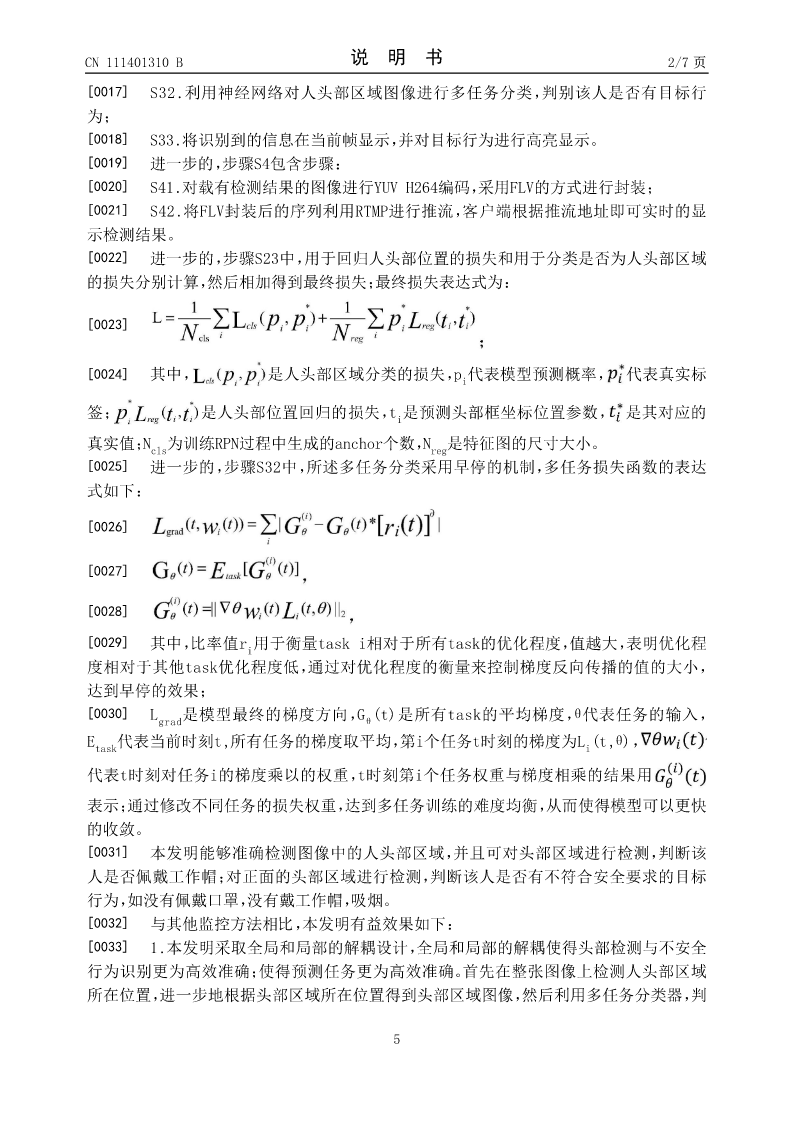 CN 111401310 B
说 明 书
2/7 页
[0017] S32.利用神经网络对人头部区域图像进行多任务分类,判别该人是否有目标行
为;
[0018] S33.将识别到的信息在当前帧显示,并对目标行为进行高亮显示。
[0019] 进一步的,步骤S4包含步骤:
[0020] S41.对载有检测结果的图像进行YUV H264编码,采用FLV的方式进行封装;
[0021] S42.将FLV封装后的序列利用RTMP进行推流,客户端根据推流地址即可实时的显
示检测结果。
[0022] 进一步的,步骤S23中,用于回归人头部位置的损失和用于分类是否为人头部区域
的损失分别计算,然后相加得到最终损失;最终损失表达式为:
[0023] L = \frac{1}{N_{cls}} \sum_i L_{cls}(p_i, p_i^*) + \frac{1}{N_{reg}} \sum_i p_i^* L_{reg}(t_i, t_i^*) ;
[0024] 其中, L_{cls}(p_i, p_i^*) 是人头部区域分类的损失, p_i代表模型预测概率, p_i^* 代表真实标
签; p_i^* L_{reg}(t_i, t_i^*) 是人头部位置回归的损失, t_i是预测头部框坐标位置参数, t_i^* 是其对应的
真实值;N_{cls}为训练RPN过程中生成的anchor个数,N_{reg}是特征图的尺寸大小。
[0025] 进一步的,步骤S32中,所述多任务分类采用早停的机制,多任务损失函数的表达
式如下:
[0026] L_{grad}(t, w_i(t)) = \sum_i | G_θ^{(i)} - G_θ(t) * [r_i(t)]^∂ |
[0027] G_θ(t) = E_{task}[G_θ^{(i)}(t)] ,
[0028] G_θ^{(i)}(t) = || ∇θ w_i(t) L_i(t,θ) ||_2 ,
[0029] 其中,比率值r_i用于衡量task i相对于所有task的优化程度,值越大,表明优化程
度相对于其他task优化程度低,通过对优化程度的衡量来控制梯度反向传播的值的大小,
达到早停的效果;
[0030] L_{grad}是模型最终的梯度方向,G_θ(t)是所有task的平均梯度,θ代表任务的输入,
E_{task}代表当前时刻t,所有任务的梯度取平均,第i个任务t时刻的梯度为L_i(t,θ), ∇θw_i(t)
代表t时刻对任务i的梯度乘以的权重,t时刻第i个任务权重与梯度相乘的结果用 G_θ^{(i)}(t)
表示;通过修改不同任务的损失权重,达到多任务训练的难度均衡,从而使得模型可以更快
的收敛。
[0031] 本发明能够准确检测图像中的人头部区域,并且可对头部区域进行检测,判断该
人是否佩戴工作帽;对正面的头部区域进行检测,判断该人是否有不符合安全要求的目标
行为,如没有佩戴口罩,没有戴工作帽,吸烟。
[0032] 与其他监控方法相比,本发明有益效果如下:
[0033] 1.本发明采取全局和局部的解耦设计,全局和局部的解耦使得头部检测与不安全
行为识别更为高效准确;使得预测任务更为高效准确。首先在整张图像上检测人头部区域
所在位置,进一步地根据头部区域所在位置得到头部区域图像,然后利用多任务分类器,判
5